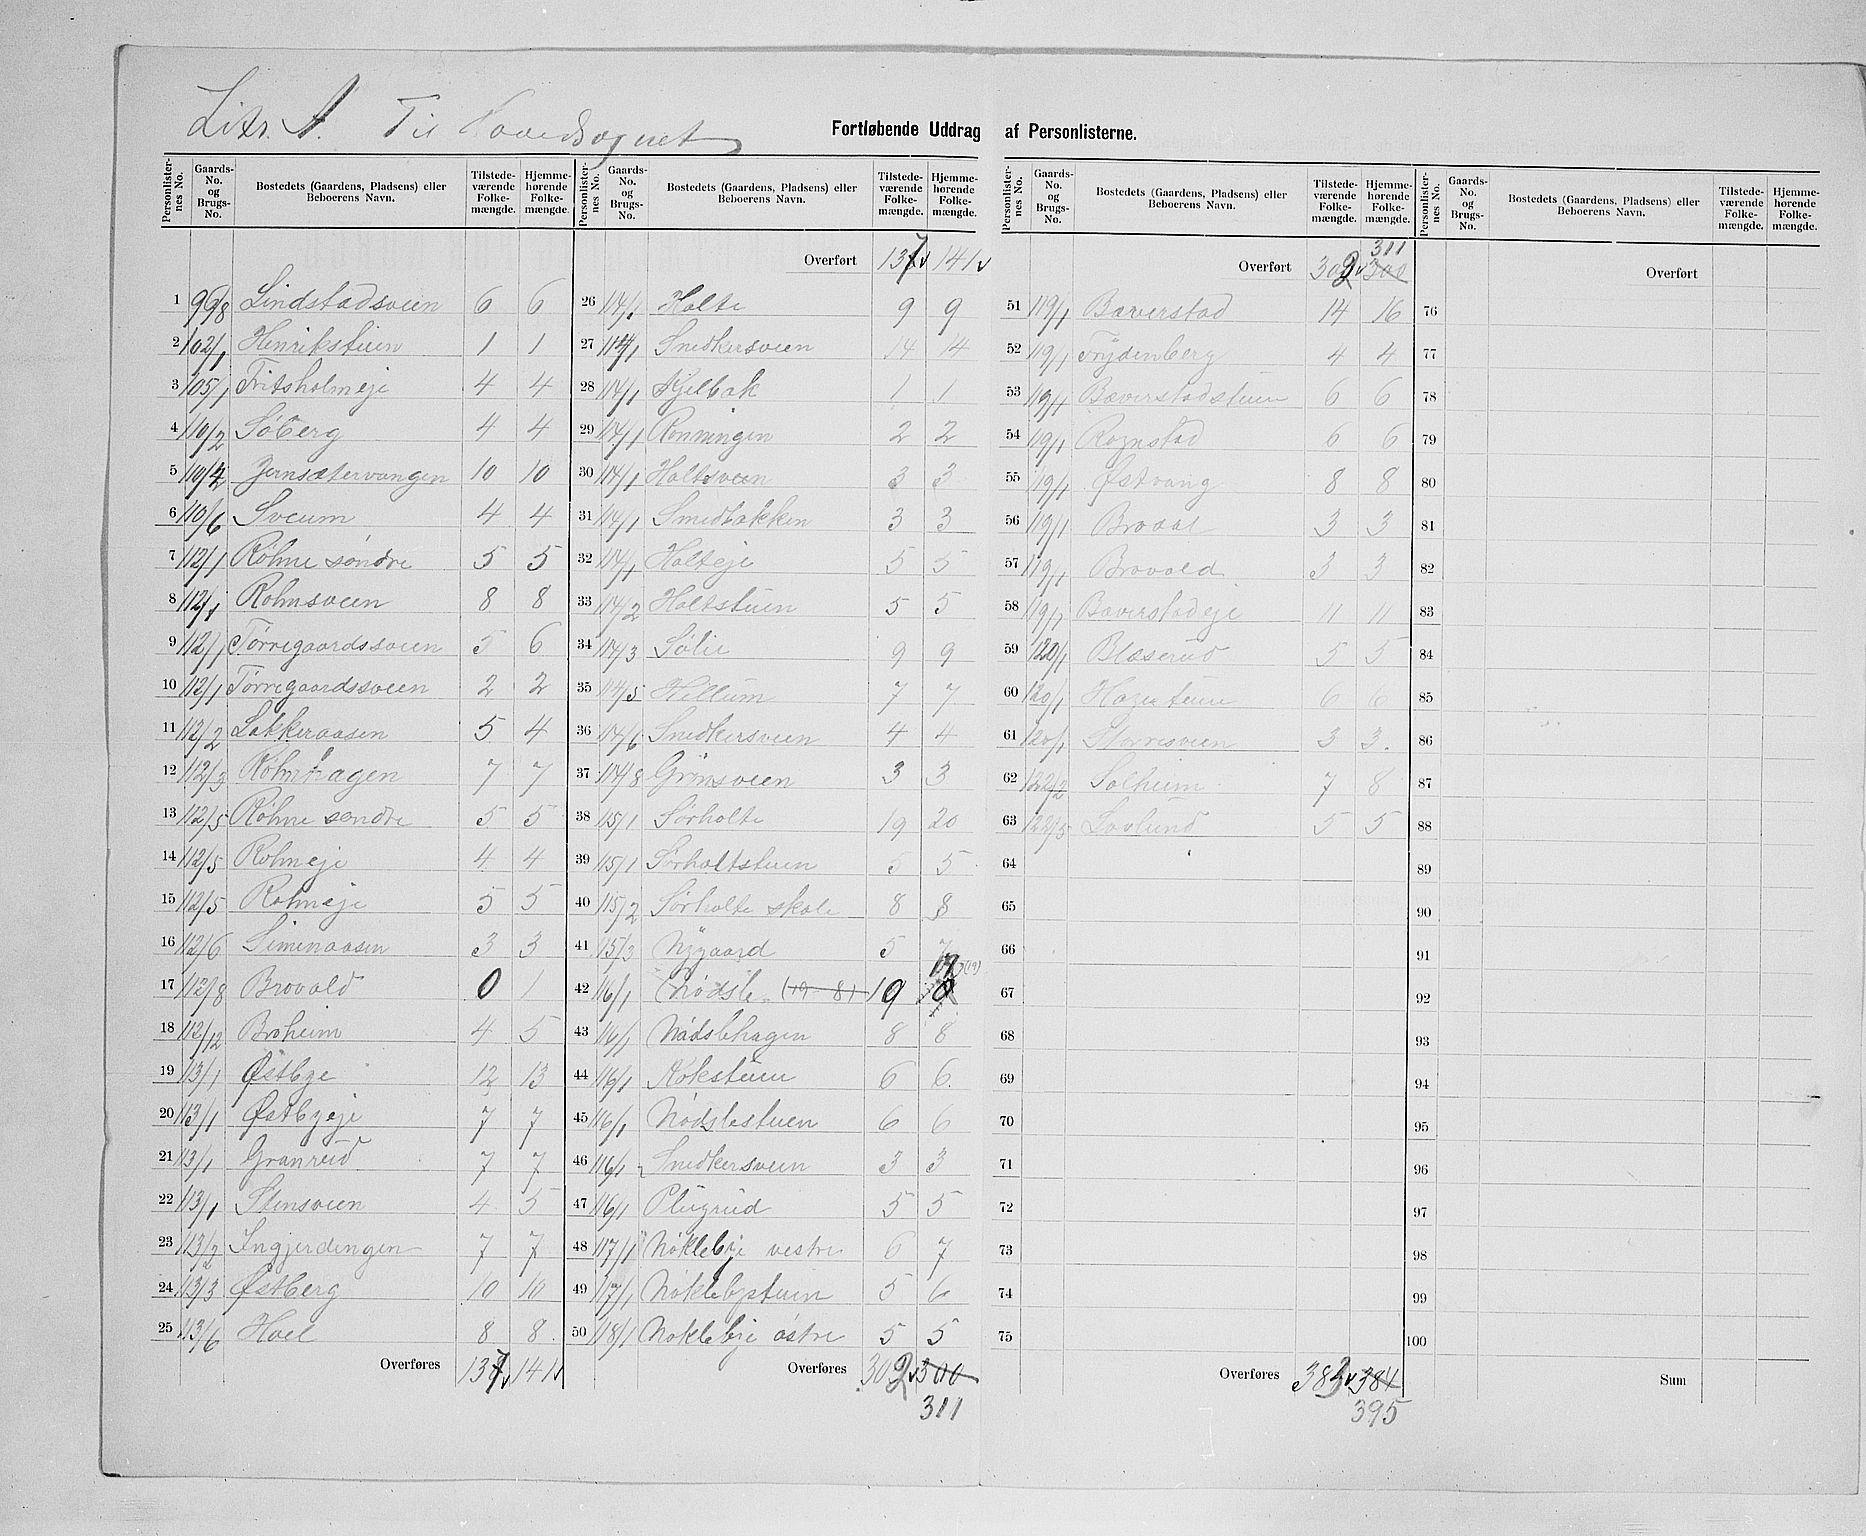 Litr. A. Til Hovedsognet
Fortløbende Uddrag af Personlisterne.
Personlisternes No. | Gaards-No. og Brugs-No. | Bostedets (Gaardens, Pladsens) eller Beboerens Navn. | Tilstedeværende Folkemængde. | Hjemmehørende Folkemængde.
1 99/8 Lindstadsveien 6 6
2 102/1 Henrikstuen 1 1
3 105/1 Fritsholmeje 4 4
4 110/2 Søberg 4 4
5 110/4 Jernsætervangen 10 10
6 110/6 Sveum 4 4
7 112/1 Røhne søndre 5 5
8 112/1 Rohnsveen 8 8
9 112/1 Torvegaardssveen 5 6
10 112/1 Torvegaardssveen 2 2
11 112/2 Lakkeraasen 5 4
12 112/3 Røhnehagen 7 7
13 112/5 Røhne søndre 5 5
14 112/5 Rohneje 4 4
15 112/5 Rohneje 5 5
16 112/6 Simenaasen 3 3
17 112/8 Brovold 0 1
18 112/12 Broheim 4 5
19 113/1 Østbye 12 13
20 113/1 Østbyeje 7 7
21 113/1 Granrud 7 7
22 113/1 Stensveen 4 5
23 113/2 Ingjerdingen 7 7
24 113/3 Østberg 10 10
25 113/6 Hoel 8 8
Overføres 137 141
Personlisternes No. | Gaards-No. og Brugs-No. | Bostedets (Gaardens, Pladsens) eller Beboerens Navn. | Tilstedeværende Folkemængde. | Hjemmehørende Folkemængde.
Overført 137 141
26 114/1 Holte 9 9
27 114/1 Snedkersveen 14 14
28 114/1 Kjelbak 1 1
29 114/1 Ronningen 2 2
30 114/1 Holtsveen 3 3
31 114/1 Smedbakken 3 3
32 114/1 Holteje 5 5
33 114/2 Holtstuen 5 5
34 114/3 Sølie 9 9
35 114/5 Hellum 7 7
36 114/6 Snedkersveen 4 4
37 114/8 Grønsveen 3 3
38 115/1 Sørholte 19 20
39 115/1 Sørholtstuen 5 5
40 115/2 Sørholte skole 8 8
41 115/3 Nygaard 5 7
42 116/1 Nødsle (19 - 8) 19 (19)
43 116/1 Nødslehagen 8 8
44 116/1 Kokstuen 6 6
45 116/1 Nødslestuen 6 6
46 116/1 Snedkersveen 3 3
47 116/1 Plugrud 5 5
48 117/1 Nøklebye vestre 6 7
49 117/1 Nøklebystuen 5 6
50 118/1 Nøklebye østre 5 5
Overføres 302 300
311
Personlisternes No. | Gaards-No. og Brugs-No. | Bostedets (Gaardens, Pladsens) eller Beboerens Navn. | Tilstedeværende Folkemængde. | Hjemmehørende Folkemængde.
311
Overført 302 300
51 119/1 Bæverstad 14 16
52 119/1 Frydenberg 4 4
53 119/1 Bæverstadstuen 6 6
54 119/1 Rognstad 6 6
55 119/1 Østvang 8 8
56 119/1 3 3
57 119/1 Brovold 3 3
58 119/1 Bæverstadeje 11 11
59 120/1 Blæserud 5 5
60 120/1 Hagestuen 6 6
61 120/1 3 3
62 122/2 Solheim 7 8
63 122/5 Lovlund 5 5
64
65
66
67
68
69
70
71
72
73
74
75
Overføres 383 384
395
Personlisternes No. | Gaards-No. og Brugs-No. | Bostedets (Gaardens, Pladsens) eller Beboerens Navn. | Tilstedeværende Folkemængde. | Hjemmehørende Folkemængde.
Overført
76
77
78
79
80
81
82
83
84
85
86
87
88
89
90
91
92
93
94
95
96
97
98
99
100
Sum